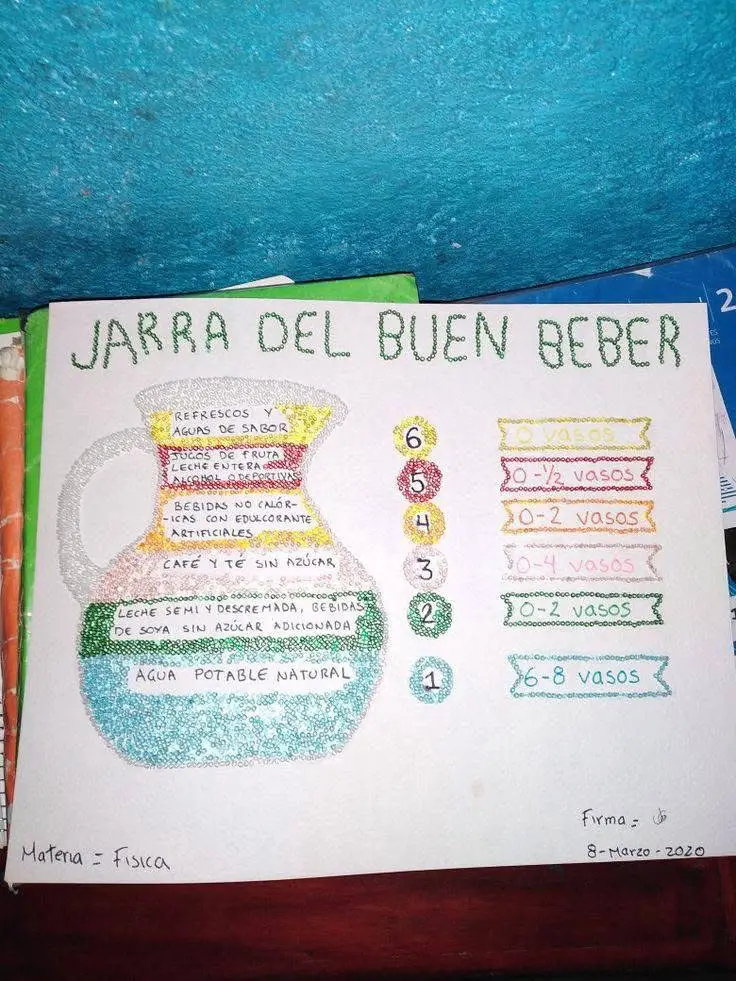 JARRA DEL BUEN BEBER
REFRESCOS Y
AGUAS DE SABOR
6
0 vasos
JUGOS DE FRUTA
LECHE ENTERA
ALCOHOL O DEPORTIVAS
5
0-½ vasos
BEBIDAS NO CALÓR-
-ICAS CON EDULCORANTE
ARTIFICIALES
4
0-2 vasos
CAFÉ Y TÉ SIN AZÚCAR
3
0-4 vasos
LECHE SEMI Y DESCREMADA, BEBIDAS
DE SOYA SIN AZÚCAR ADICIONADA
2
0-2 vasos
AGUA POTABLE NATURAL
1
6-8 vasos
Firma =
8-Marzo-2020
Materia = Física
2